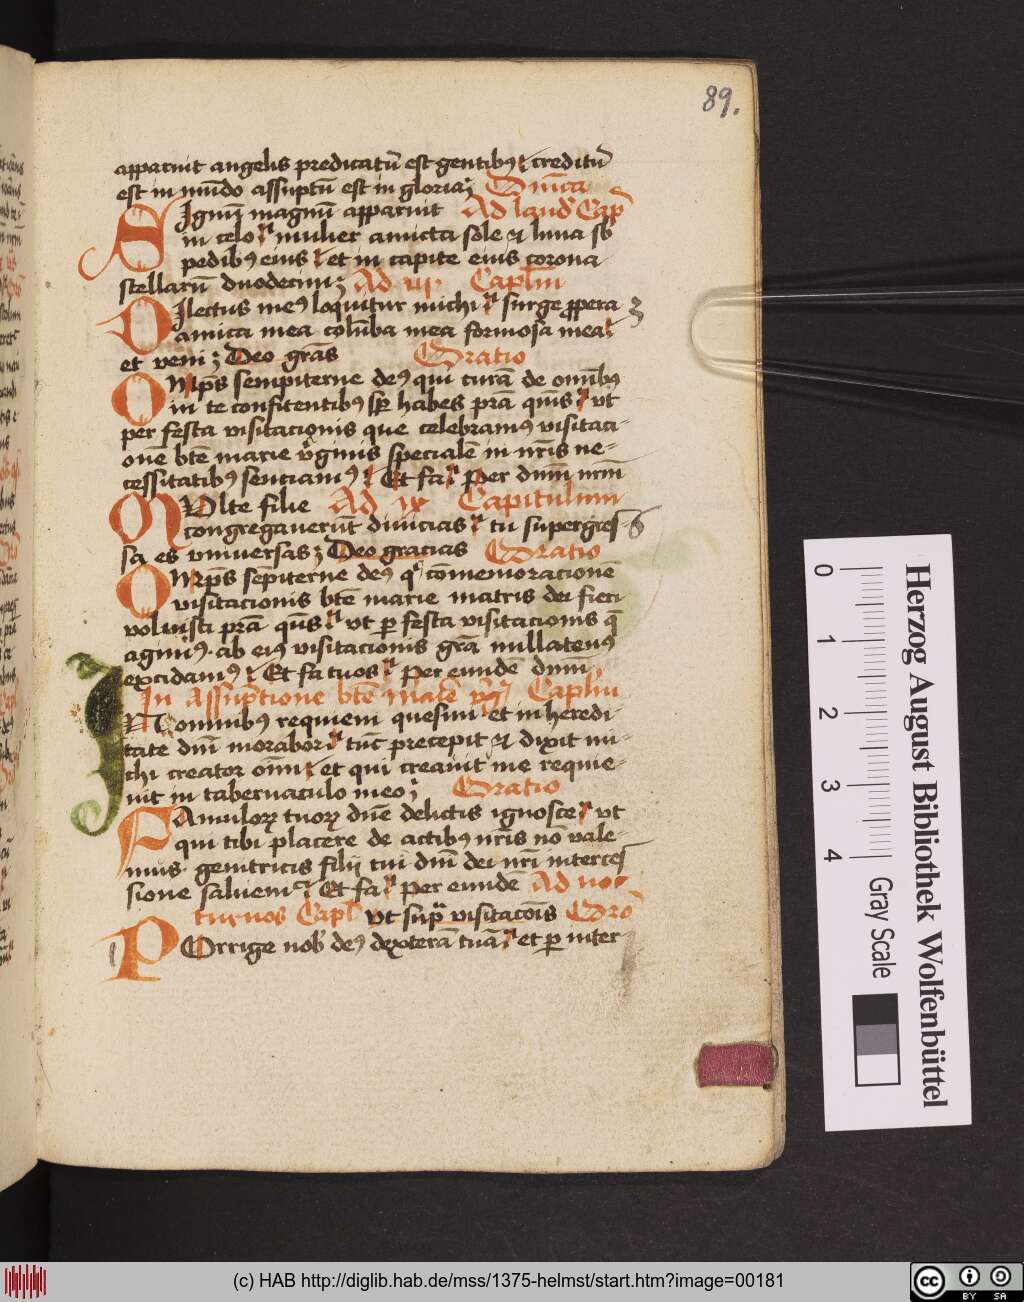 89.
apparuit angelis predicatū est gentibꝰ creditū
est in mūdo assūptū est in gloria;
Ignū magnū apparuit Ad laud' Cap̄
in celo mulier amicta sole et luna sb
pedibꝰ eius et in capite eius corona
stellarū duodecim; Ad iii Caplm
DIlectus meꝰ loquitur michi surge ꝓpera
amica mea colūba mea formosa mea
et veni; Deo grās Oratio
OMps sempiterne deꝰ qui curā de omībꝰ
in te confitentibꝰ sp habes prā qm̄s vt
per festa visitacionis que celebramꝰ visitaci-
onē btē marie v'ginis specialē in nr̄is ne-
cessitatibꝰ senciamꝰ Et fa Per dnm nrm
MUlte filie Ad ix Capitulum
congregauerūt diuicias tu supergres-
sa es vniuersas; Deo gracias Oratio
OMps sēpiterne deꝰ q' cōmemoracionē
visitacionis btē marie matris dei fieri
voluisti prā qm̄s vt ꝑ festa visitacionis q̄
agimꝰ ab eiꝰ visitacionis grā nullatenꝰ
excidamꝰ Et fa tuos Per eundē dnm
In Assūptione btē marie v'g' Caplm
IN omnibꝰ requiem quesiui et in heredi-
tate dnī morabor tūc precepit et dixit mi-
chi creator omī et qui creauit me requie-
uit in tabernaculo meo; Oratio
FAmuloꝝ tuoꝝ dnē delictis ignosce vt
qui tibi placere de actibꝰ nr̄is nō vale-
mus genitricis filii tui dnī dei nr̄i interces
sione saluemr Et fa per eundē Ad noc
turnos Capl vt sup̄ visitacōis Oro
POrrige nob' deꝰ dexterā tuā et ꝑ inter
0 1 2 3 4
Gray Scale
Herzog August Bibliothek Wolfenbüttel
(c) HAB http://diglib.hab.de/mss/1375-helmst/start.htm?image=00181
cc BY SA